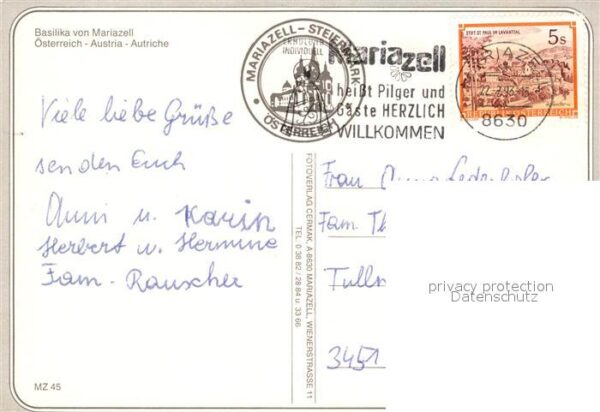 Basilika von Mariazell
Österreich - Austria - Autriche
Viele liebe Grüße
senden Euch
Anni u. Karin
Herbert u. Hermine
Fam. Rauscher
MZ 45
MARIAZELL - STEIERMARK
ERHOLUNG
INDIVIDUELL
ÖSTERREICH
Mariazell
heißt Pilger und
Gäste HERZLICH
WILLKOMMEN
STIFT ST. PAUL IM LAVANTTAL
5s
REPUBLIK ÖSTERREICH
MARIAZELL
8630
FOTOVERLAG CERMAK, A-8630 MARIAZELL, WIENERSTRASSE 11
TEL. 0 38 82 / 28 84 u. 33 66
Frau
Fam. Th
Tulln
3451
privacy protection
Datenschutz